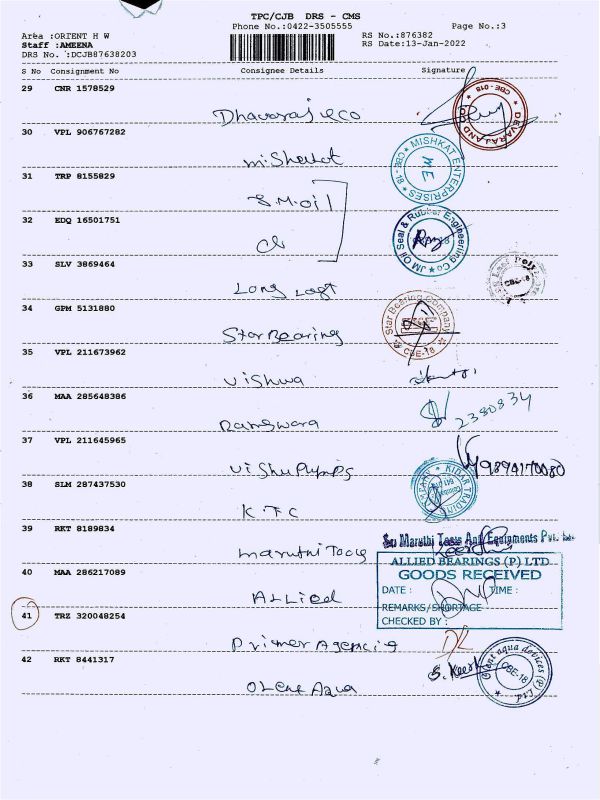 TPC/CJB DRS - CMS
Phone No.:0422-3505555
Page No.:3
Area :ORIENT H W
Staff :AMEENA
DRS No. :DCJB87638203
RS No.:876382
RS Date:13-Jan-2022
S No Consignment No Consignee Details Signature
29 CNR 1578529
CBE-018 DEVARAJ AND
30 VPL 906767282
MISHKAT ENTERPRISES CBE-18
ME
31 TRP 8155829 J.M.oil
32 EDQ 16501751
JM Oil Seal & Rubber Engineering Co
33 SLV 3869464
CBE-18
34 GPM 5131880 Star Bearing
Star Bearing Company CBE-18
35 VPL 211673962 Vishwa
36 MAA 285648386
2380834
37 VPL 211645965
9894170080
38 SLM 287437530 K.T.C
39 RKT 8189834 Maruthi Tools
Sri Maruthi Tools And Equipments Pvt. Ltd.
40 MAA 286217089 Allied
ALLIED BEARINGS (P) LTD
GOODS RECEIVED
DATE : TIME :
REMARKS/SHORTAGE
CHECKED BY :
41 TRZ 320048254
42 RKT 8441317
S. Keerth
aqua devices (P) Ltd.
CBE-18